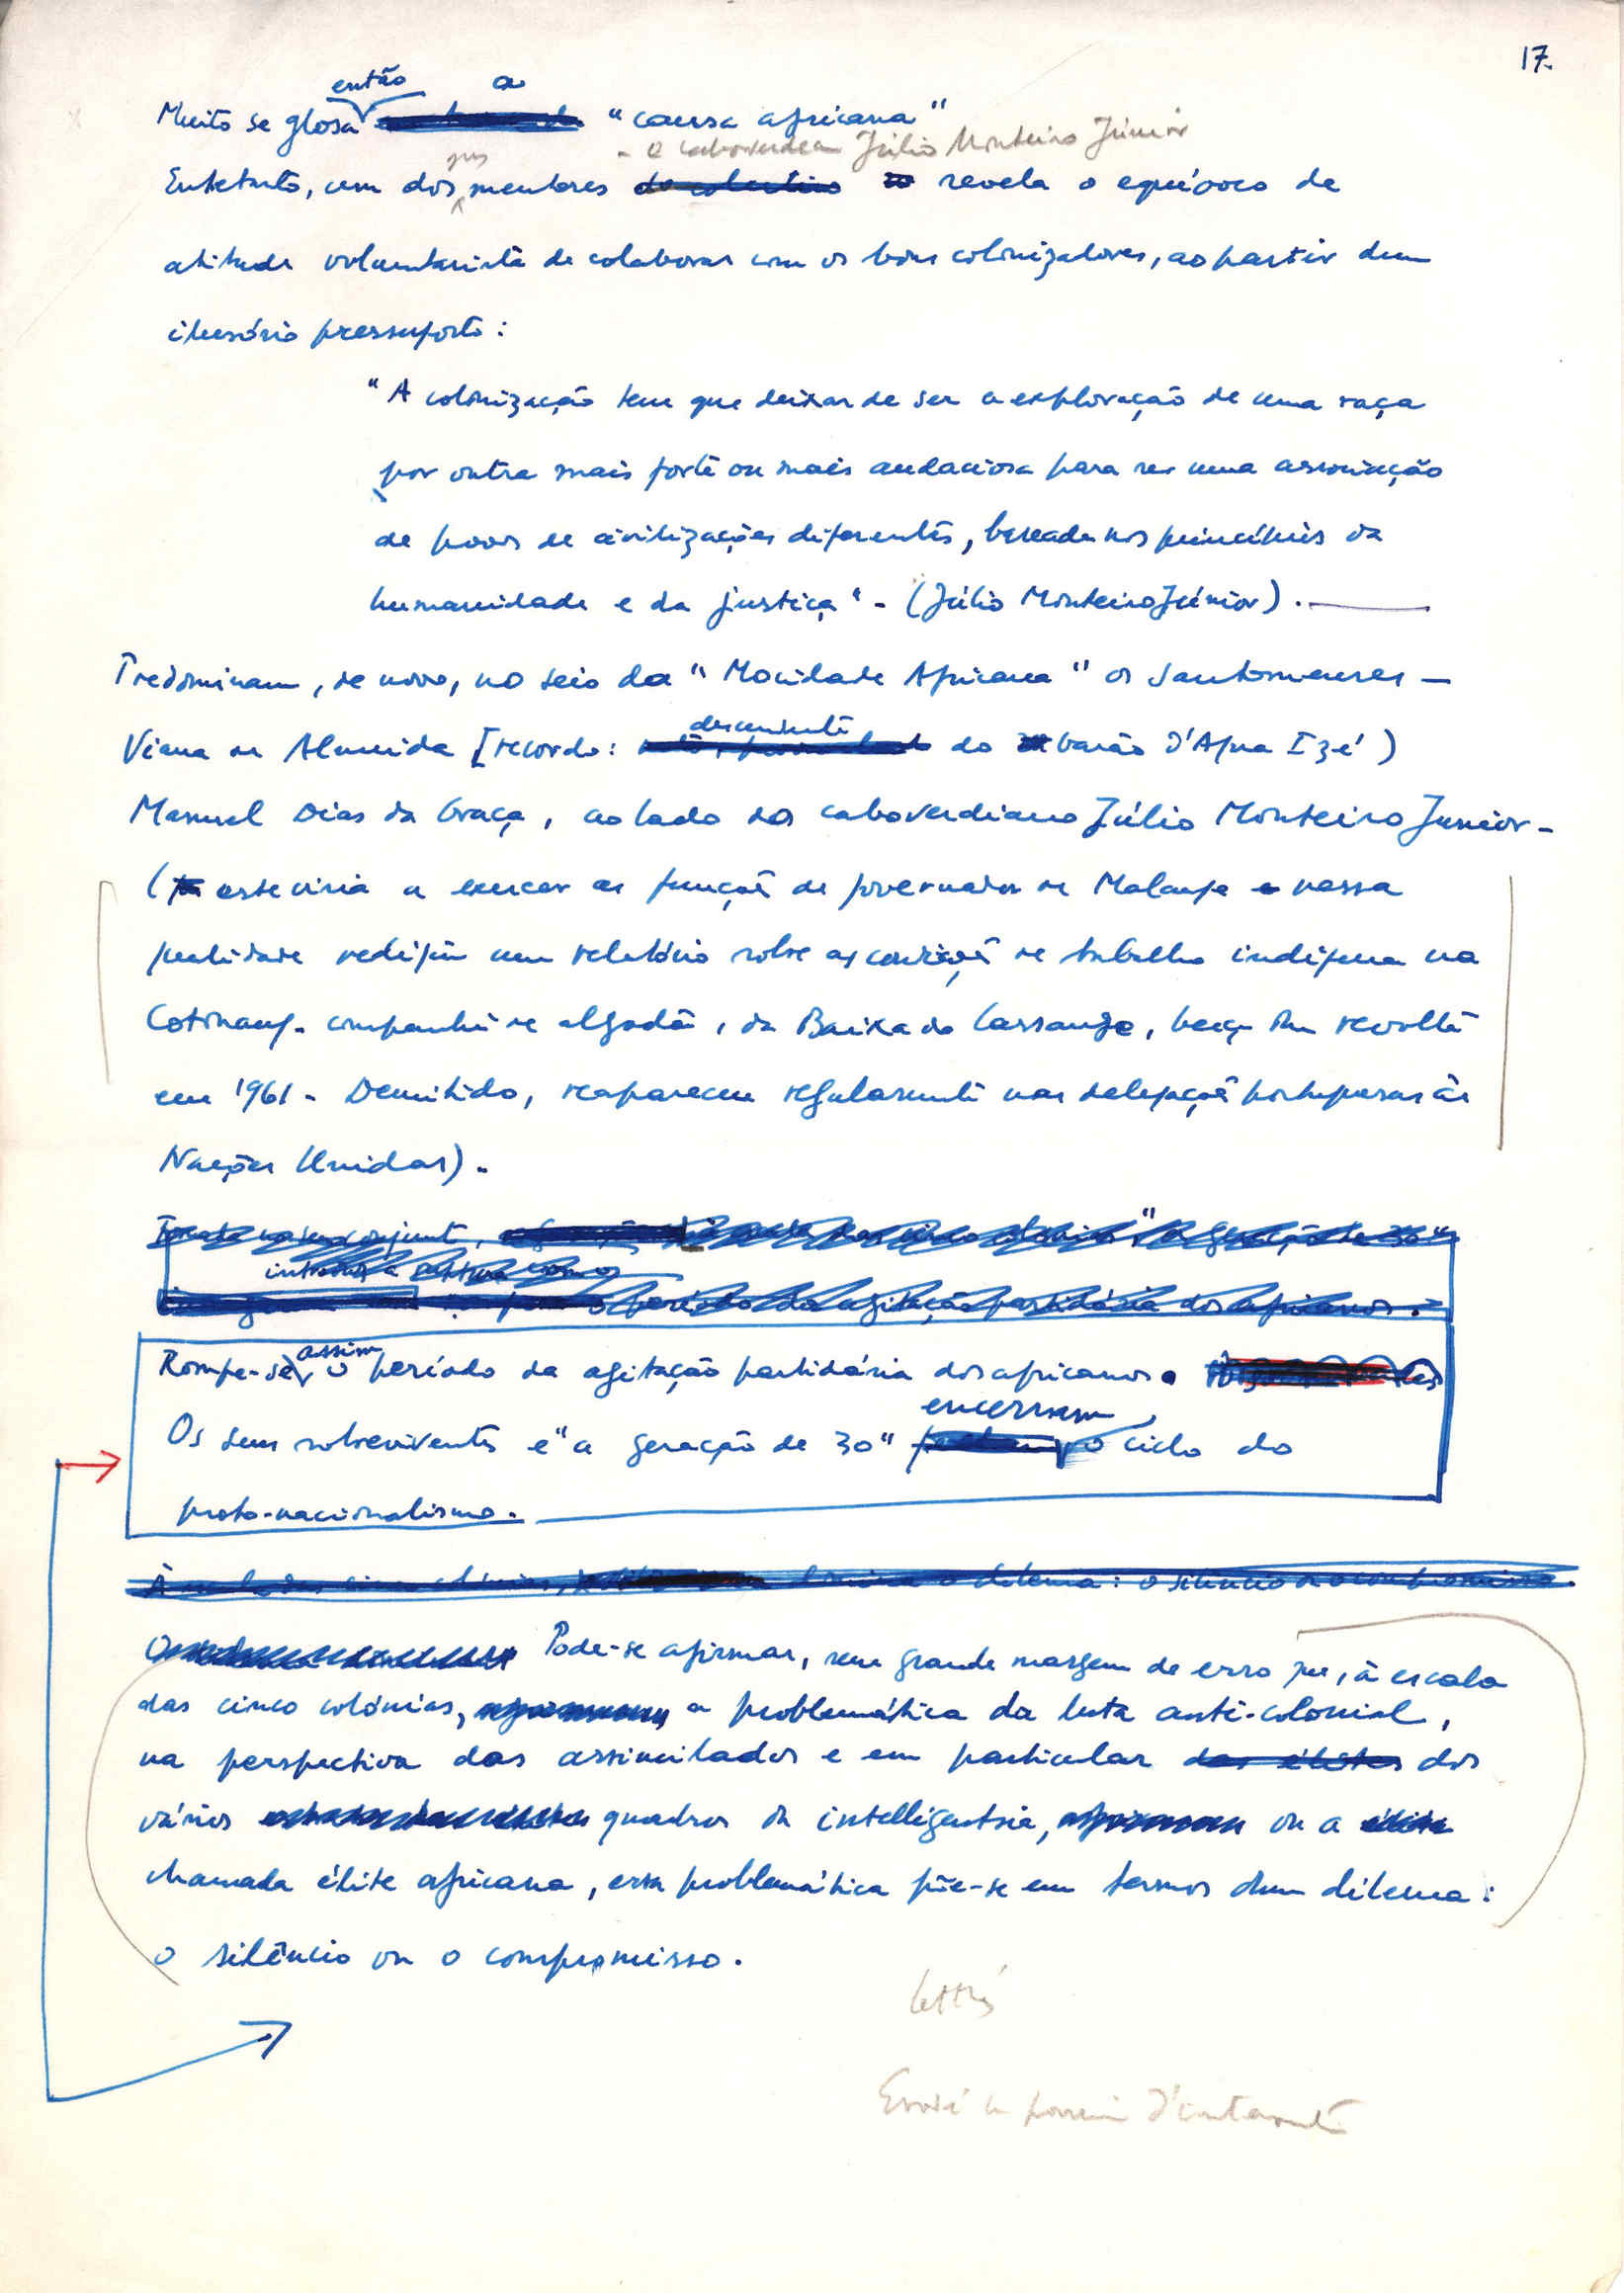 17.
então a
Muito se glosa "causa africana"
- o caboverdeano Júlio Monteiro Júnior
Entretanto, um dos seus mentores revela o equívoco de
atitude voluntarista de colaborar com os bons colonizadores, ao partir dum
ilusório pressuposto :
"A colonização tem que deixar de ser a exploração de uma raça
por outra mais forte ou mais audaciosa para ser uma associação
de povos de civilizações diferentes, baseada nos princípios da
humanidade e da justiça" - (Júlio Monteiro Júnior).
Predominam, de novo, no seio da "Mocidade Africana" os santomenses -
descendente
Viana de Almeida [recordo: do barão d'Água Izé)
Manuel Dias da Graça, ao lado do caboverdiano Júlio Monteiro Junior -
( este viria a exercer as funções de governador de Malange e nessa
qualidade redigiu um relatório sobre as condições de trabalho indígena na
Cotonang. companhia de algodão, da Baixa do Cassange, berço da revolta
em 1961 - Demitido, reapareceu regularmente nas delegações portuguesas às
Nações Unidas).
introduz a
o período da agitação partidária dos africanos.
assim
Rompe-se o período da agitação partidária dos africanos.
encerram
Os seus sobreviventes e "a geração de 30" o ciclo do
proto-nacionalismo.
domina o dilema : o silêncio ou o compromisso.
Pode-se afirmar, sem grande margem de erro que, à escala
das cinco colónias, a problemática da luta anti-colonial,
na perspectiva dos assimilados e em particular das élites dos
vários quadros da intelligentsia, ou a
chamada élite africana, essa problemática põe-se em termos dum dilema :
o silêncio ou o compromisso.
lettrés